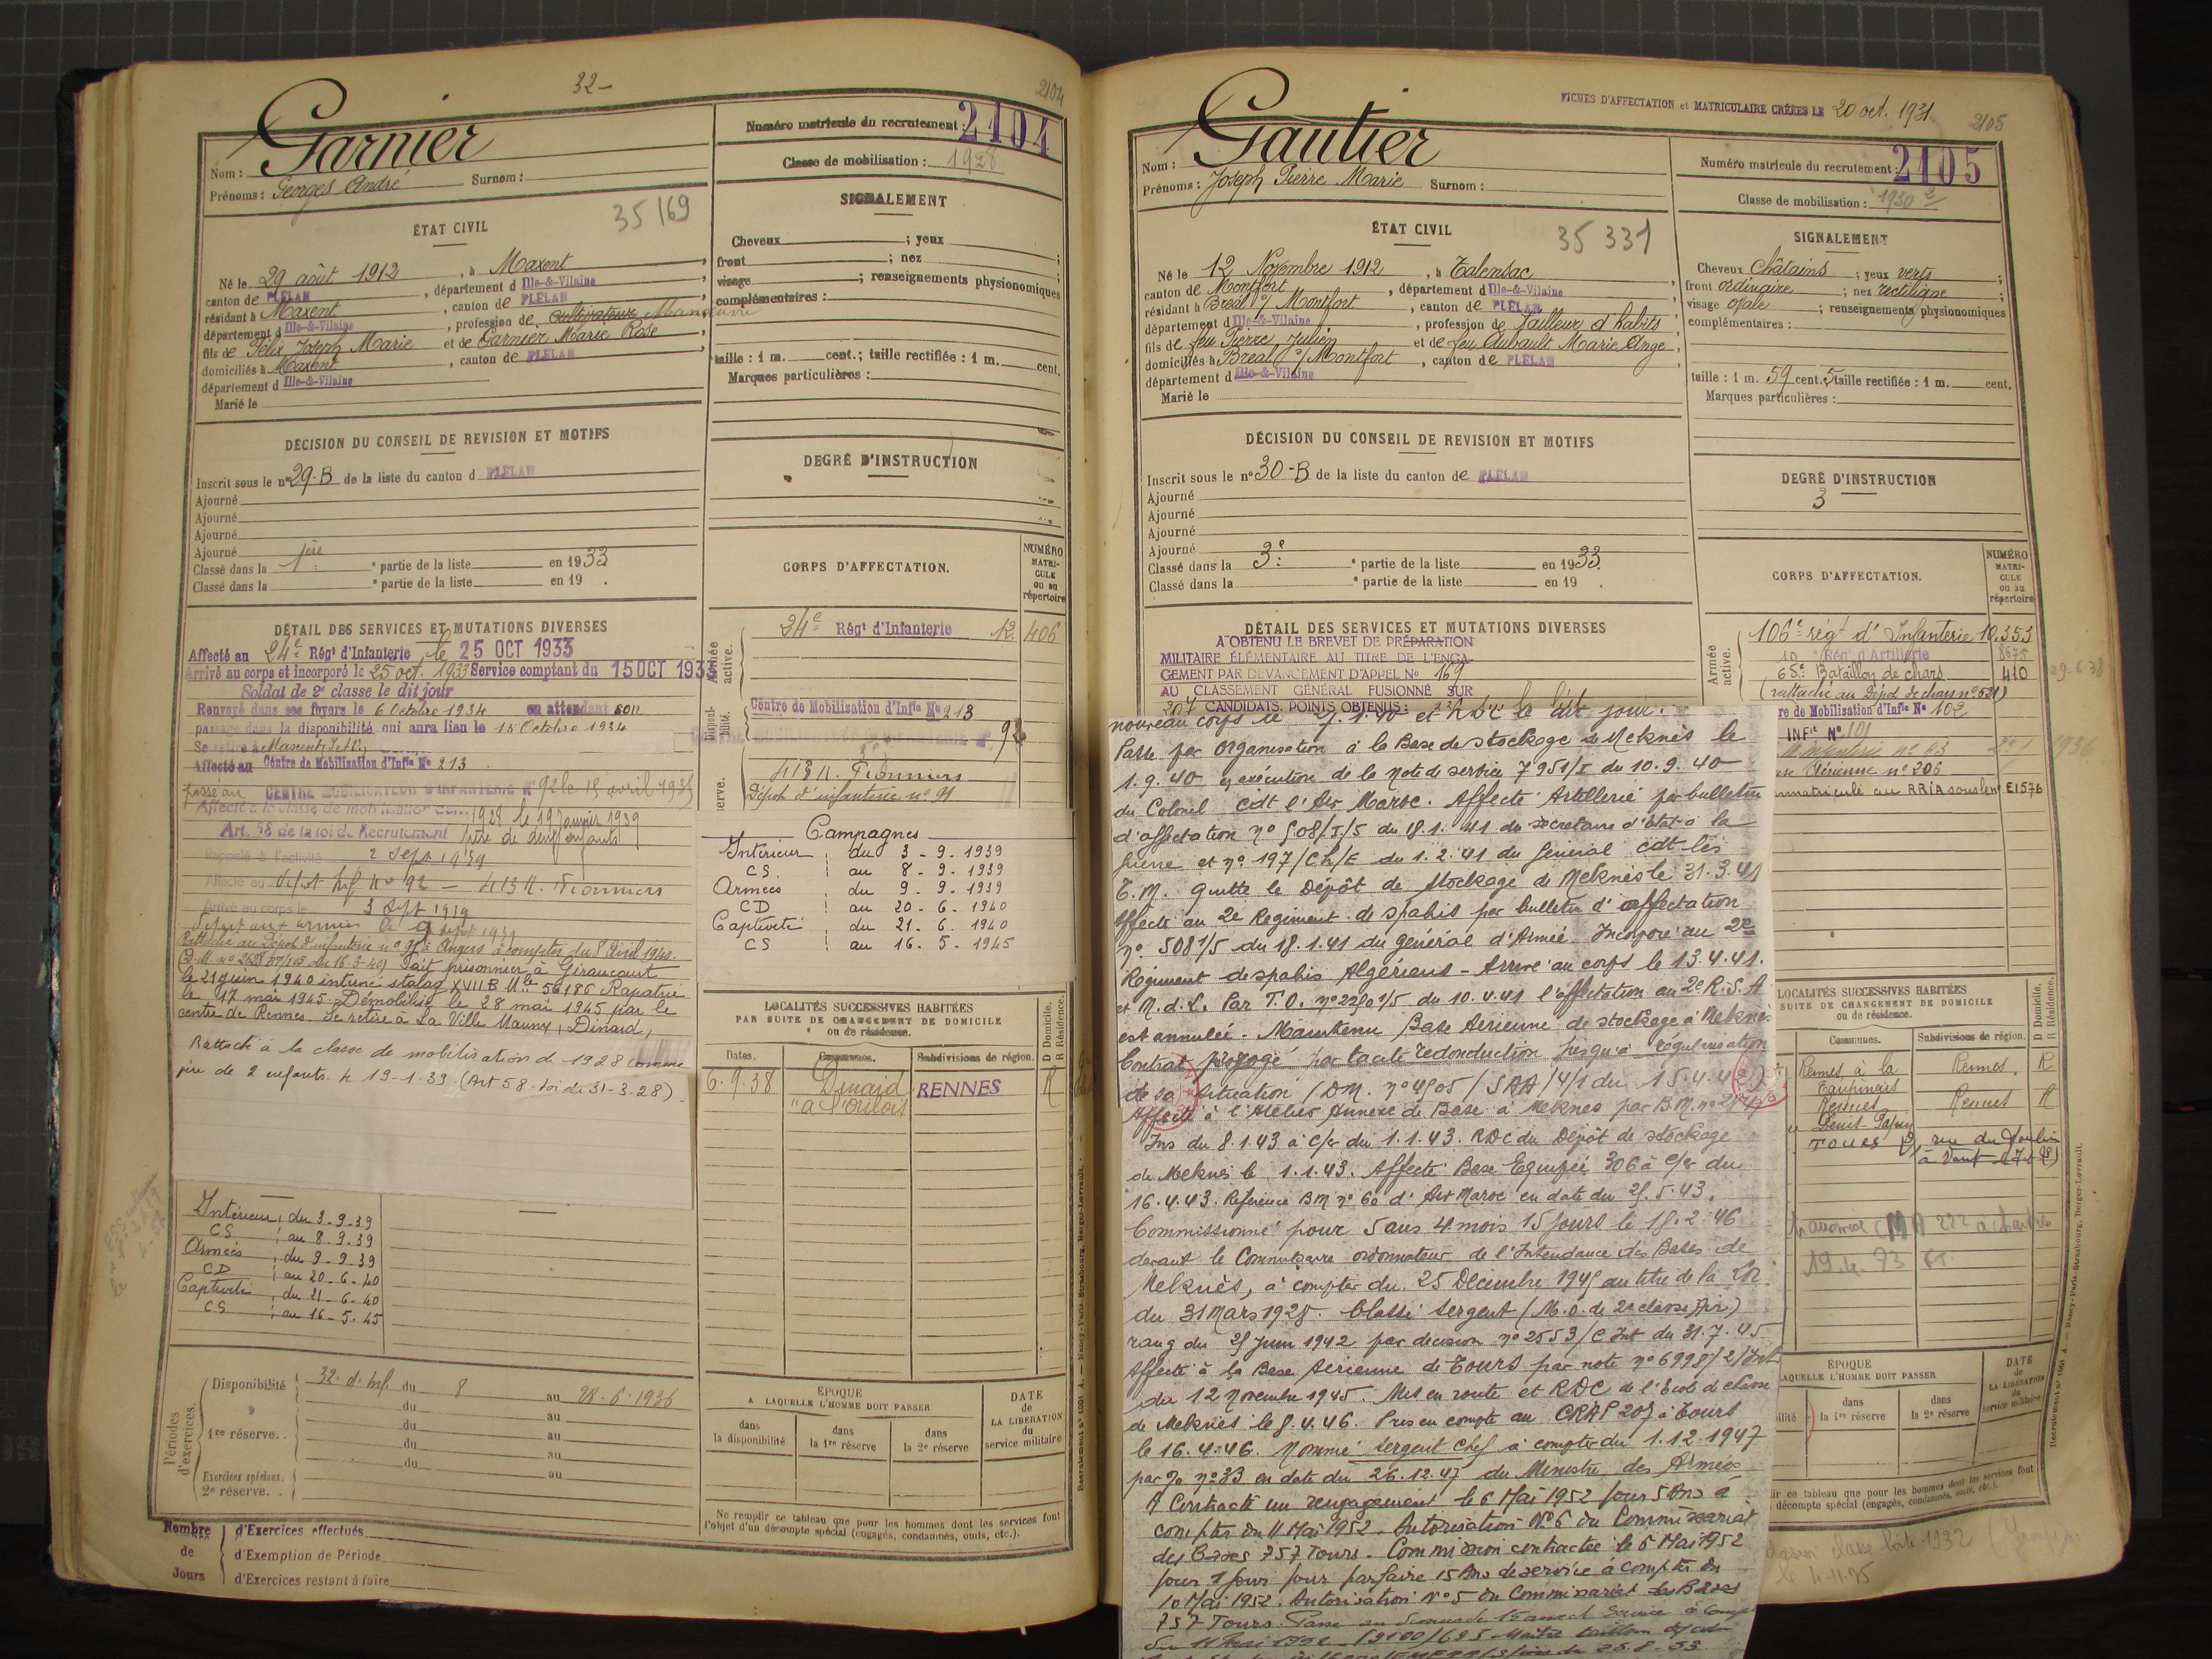 32-
2104
Garnier
Nom :
Prénoms : Georges André Surnom :
Numéro matricule du recrutement : 2104
Classe de mobilisation : 1928
ÉTAT CIVIL
35169
Né le 29 août 1912, à Maxent
canton de PLÉLAN, département d Ille-&-Vilaine
résidant à Maxent, canton de PLÉLAN
département d Ille-&-Vilaine, profession de cultivateur Manœuvre
fils de Félix Joseph Marie et de Garnier Marie Rose
domiciliés à Maxent, canton de PLÉLAN
département d Ille-&-Vilaine
Marié le
SIGNALEMENT
Cheveux ; yeux ;
front ; nez ;
visage ; renseignements physionomiques
complémentaires :
taille : 1 m. cent.; taille rectifiée : 1 m. cent.
Marques particulières :
DÉCISION DU CONSEIL DE REVISION ET MOTIFS
Inscrit sous le n° 29-B de la liste du canton d PLÉLAN
Ajourné
Ajourné
Ajourné
Ajourné
Classé dans la 1ère ° partie de la liste en 1933
Classé dans la ° partie de la liste en 19 .
DEGRÉ D'INSTRUCTION
DÉTAIL DES SERVICES ET MUTATIONS DIVERSES
Affecté au 24e Régt d'Infanterie, le 25 OCT 1933
Arrivé au corps et incorporé le 25 oct. 1933 Service comptant du 15 OCT 1933
Soldat de 2e classe le dit jour
Renvoyé dans ses foyers le 6 Octobre 1934 en attendant son
passage dans la disponibilité qui aura lieu le 15 Octobre 1934
Se retire à Maxent, I et V.
Affecté au Centre de Mobilisation d'Infie N° 213
passé au CENTRE MOBILISATEUR D'INFANTERIE N° 92 le 15 avril 1935
Affecté à la classe de mobilisation de 1928 le 19 Janvier 1939
Art. 58 de la loi de Recrutement père de deux enfants
Rappelé à l'activité 2 Sept 1939
Affecté au dépôt Inf n° 92 - 413 R. Pionniers
Arrivé au corps le 3 Sept 1939
Départ aux armées le 9 Sept 1939
Rattaché au Dépôt d'infanterie n° 91 à Angers à compter du 8 Avril 1940.
Fait prisonnier à Giraucourt
le 21 juin 1940 interné stalag XVII B Mle 56186 Rapatrié
le 17 mai 1945. Démobilisé le 28 mai 1945 par le
centre de Rennes. Se retire à La Ville Mauny, Dinard,
Rattaché à la classe de mobilisation de 1928 comme
père de 2 enfants le 19-1-39 (Art 58 - loi du 31-3-28)
CORPS D'AFFECTATION.
NUMÉRO MATRICULE ou au répertoire
Armée active.
24e Régt d'Infanterie 406
Disponibilité.
Centre de Mobilisation d'Infie N° 213
92
413 R. Pionniers
Dépôt d'infanterie n° 91
Campagnes
Intérieur du 3-9-1939
CS. au 8-9-1939
Armées du 9-9-1939
CD au 20-6-1940
Captivité du 21-6-1940
CS au 16-5-1945
LOCALITÉS SUCCESSIVES HABITÉES
PAR SUITE DE CHANGEMENT DE DOMICILE
ou de résidence.
D Domicile. R Résidence.
Dates. Communes. Subdivisions de région.
6.9.38 Dinard RENNES R
Intérieur du 3-9-39
CS au 8-9-39
Armées du 9-9-39
CD au 20-6-40
Captivité du 21-6-40
CS au 16-5-45
Périodes d'exercices.
Disponibilité 32. d. Inf. du 8 au 28-6-1936
du au
1re réserve.. du au
du au
du au
Exercices spéciaux.
2e réserve. . au
ÉPOQUE
A LAQUELLE L'HOMME DOIT PASSER
dans la disponibilité
dans la 1re réserve
dans la 2e réserve
DATE de LA LIBÉRATION du service militaire
Ne remplir ce tableau que pour les hommes dont les services font
l'objet d'un décompte spécial (engagés, condamnés, omis, etc.).
Nombre de Jours
d'Exercices effectués
d'Exemption de Période
d'Exercices restant à faire
FICHES D'AFFECTATION et MATRICULAIRE CRÉÉES LE 20 oct. 1931
2105
Gautier
Nom :
Prénoms : Joseph Pierre Marie Surnom :
Numéro matricule du recrutement : 2105
Classe de mobilisation : 1930
ÉTAT CIVIL
35 331
Né le 12 Novembre 1912, à Talensac
canton de Montfort, département d Ille-&-Vilaine
résidant à Bréal s/ Montfort, canton de PLÉLAN
département d Ille-&-Vilaine, profession de tailleur d'habits
fils de feu Pierre Julien et de feu Aubault Marie Ange
domiciliés à Bréal s/ Montfort, canton de PLÉLAN
département d Ille-&-Vilaine
Marié le
SIGNALEMENT
Cheveux châtains ; yeux verts ;
front ordinaire ; nez rectiligne ;
visage ovale ; renseignements physionomiques
complémentaires :
taille : 1 m. 59 cent. 5 taille rectifiée : 1 m. cent.
Marques particulières :
DÉCISION DU CONSEIL DE REVISION ET MOTIFS
Inscrit sous le n° 30-B de la liste du canton de PLÉLAN
Ajourné
Ajourné
Ajourné
Ajourné
Classé dans la 3e ° partie de la liste en 1933.
Classé dans la ° partie de la liste en 19 .
DEGRÉ D'INSTRUCTION
3
DÉTAIL DES SERVICES ET MUTATIONS DIVERSES
A OBTENU LE BREVET DE PRÉPARATION
MILITAIRE ÉLÉMENTAIRE AU TITRE DE L'ENGA-
GEMENT PAR DEVANCEMENT D'APPEL N° 169
AU CLASSEMENT GÉNÉRAL FUSIONNÉ SUR
207 CANDIDATS. POINTS OBTENUS :
CORPS D'AFFECTATION.
NUMÉRO MATRICULE ou au répertoire
Armée active.
106e régt d'Infanterie 10.353
10 Rég. d'Artillerie 8675
65e Bataillon de chars 410 29.6.38
(rattaché au Dépôt de chars n° 521)
re de Mobilisation d'Infie N° 102
INFie N° 101
Aérienne n° 206
immatriculé au RRIA sous le n° E1576
nouveau corps le 7.1.40 et RDC le dit jour.
Passe par organisation à la Base de stockage de Meknès le
1.9.40 en exécution de la Note de service 7951/I du 10.9.40
du Colonel Cdt l'Air Maroc. Affecté Artillerie par bulletin
d'affectation n° 508/I/5 du 18.1.41 du secrétaire d'état à la
guerre et n° 197/Ch/E du 1.2.41 du Général Cdt les
T.M. Quitte le Dépôt de Stockage de Meknès le 31.3.41
Affecté au 2e Régiment de spahis par bulletin d'affectation
n° 508 1/5 du 18.1.41 du général d'Armée. Incorporé au 2e
Régiment de spahis Algériens - Arrivé au corps le 13.4.41.
et M.d.L. Par T.O. du 10.4.41 l'affectation au 2e R.S.A
est annulée. Maintenu Base Aérienne de stockage à Meknès
Contrat prorogé par tacite reconduction jusqu'à régularisation
de sa situation (DM. n° 4505/SAA/4/1 du 15.4.42)
Affecté à l'Atelier Annexe de Base à Meknès par B.M. n°
Ins du 8.1.43 à c/r du 1.1.43. RDC du Dépôt de stockage
de Meknès le 1.1.43. Affecté Base Equipée 306 à c/r du
16.4.43. Référence BM n° 60 d'Air Maroc en date du 25.5.43.
Commissionné pour 5 ans 4 mois 15 jours le 15.2.46
devant le Commissaire ordonnateur de l'Intendance des Bases de
Meknès, à compter du 25 Décembre 1945 au titre de la Loi
du 31 Mars 1928. Classé Sergent (M.O. de 2e classe Air)
rang du 25 Juin 1942 par décision n° 2553/C Int du 31.7.45
Affecté à la Base Aérienne de Tours par note n° 6998/2/Int
du 12 Novembre 1945. Mis en route et RDC de l'Ecole de chasse
de Meknès le 8.4.46. Pris en compte au CRAP 207 à Tours
le 16.4.46. Nommé Sergent Chef à compter du 1.12.1947
par % n° 33 en date du 26.12.47 du Ministre des Armées
A Contracté un rengagement le 6 Mai 1952 pour 5 Ans à
compter du 11 Mai 1952. Autorisation N° 6 du Commissariat
des Bases 757 Tours. Commission contractée le 6 Mai 1952
pour 1 jour pour parfaire 15 Ans de service à compter du
10 Mai 1952. Autorisation N° 5 du Commissariat des Bases
757 Tours.
LOCALITÉS SUCCESSIVES HABITÉES
SUITE DE CHANGEMENT DE DOMICILE
ou de résidence.
D Domicile. R Résidence.
Communes. Subdivisions de région.
Rennes à la Rennes. R
Rennes Rennes R
TOURS rue du Moulin
à Vent
19.4.93
ÉPOQUE
LAQUELLE L'HOMME DOIT PASSER
dans la 1re réserve
dans la 2e réserve
DATE de LA LIBÉRATION du service militaire
ir ce tableau que pour les hommes dont les services font
décompte spécial (engagés, condamnés, omis, etc.).